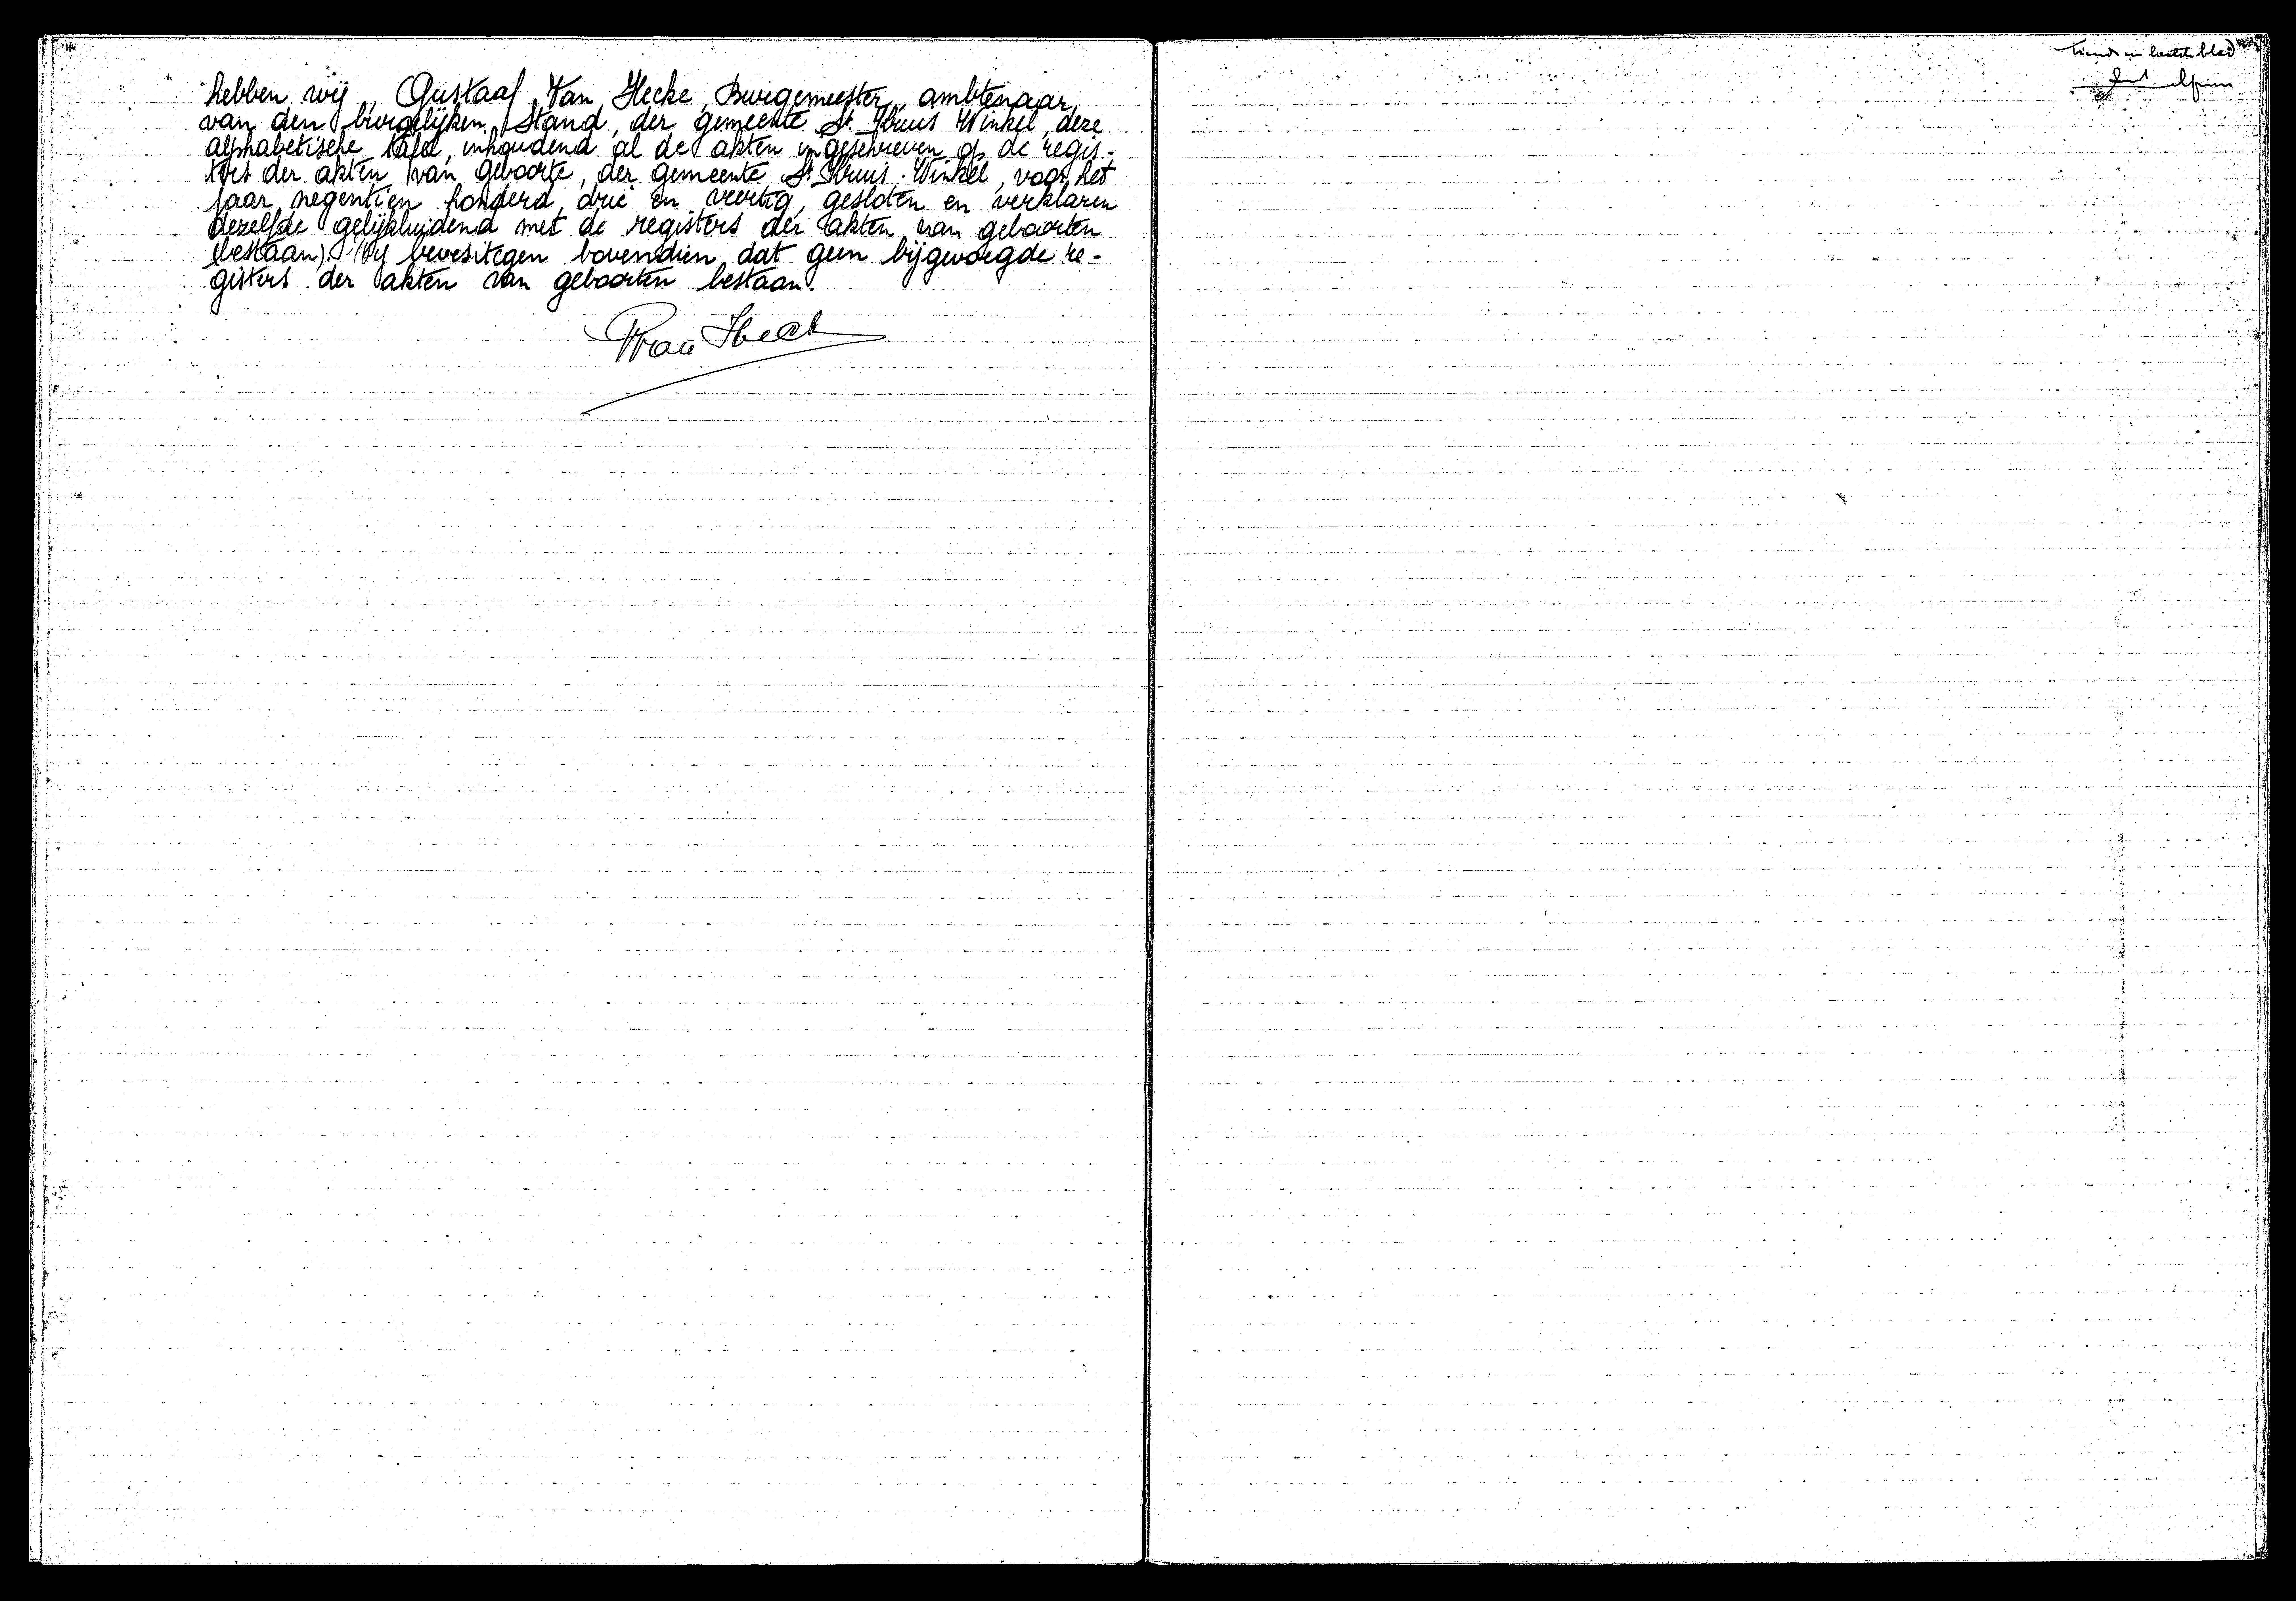 hebben wij, Gustaaf Van Hecke, Burgemeester, ambtenaar
van den burgelijken Stand, der gemeente St. Kruis Winkel, deze
alphabetische tafel, inhoudend al de akten ingeschreven op de regis-
ters der akten van geboorte, der gemeente St. Kruis-Winkel, voor het
jaar negentien honderd drie en veertig, gesloten en verklaren
dezelfde gelijkluidend met de registers der akten van geboorten
(bestaan). Wij bevesitegen bovendien dat geen bijgevoegde re-
gisters der akten van geboorten bestaan.
Van Heck
tiende en laatste blad